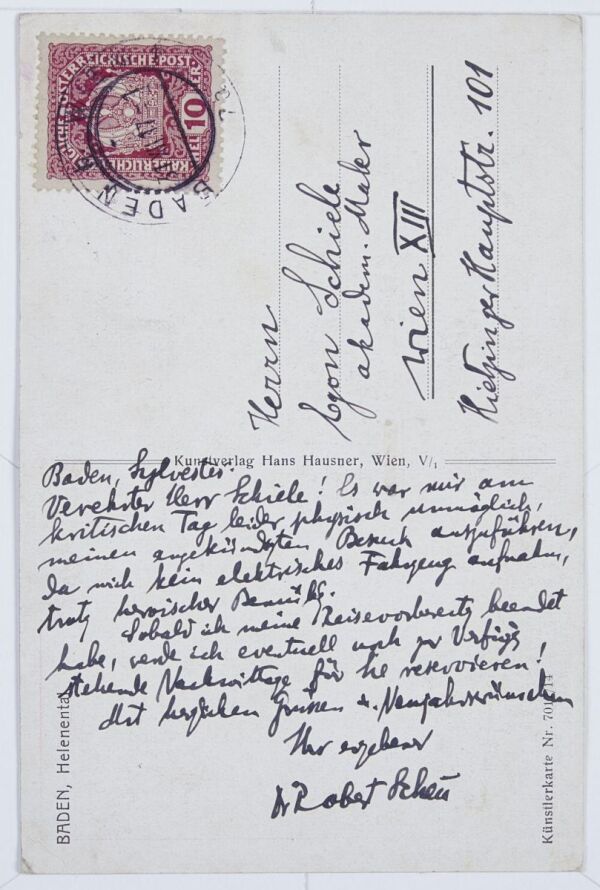 KAISERLICHE KÖNIGLICHE ÖSTERREICHISCHE POST
10 HELLER
BADEN
Herrn
Egon Schiele
akadem. Maler
Wien XIII
Hietzinger Hauptstr. 101
Kunstverlag Hans Hausner, Wien, V/1
Baden, Sylvester.
Verehrter Herr Schiele! Es war mir am
kritischen Tag leider physisch unmöglich,
meinen angekündigten Besuch auszuführen,
da mich kein elektrisches Fahrzeug aufnahm,
trotz heroischer Bemühg.
Sobald ich meine Reisevorbereitg beendet
habe, werde ich eventuell noch zur Verfügg
stehende Nachmittage für Sie reservieren!
Mit herzlichen Grüssen u. Neujahrswünschen
Ihr ergebener
Dr Robert Scheu
BADEN, Helenental
Künstlerkarte Nr.